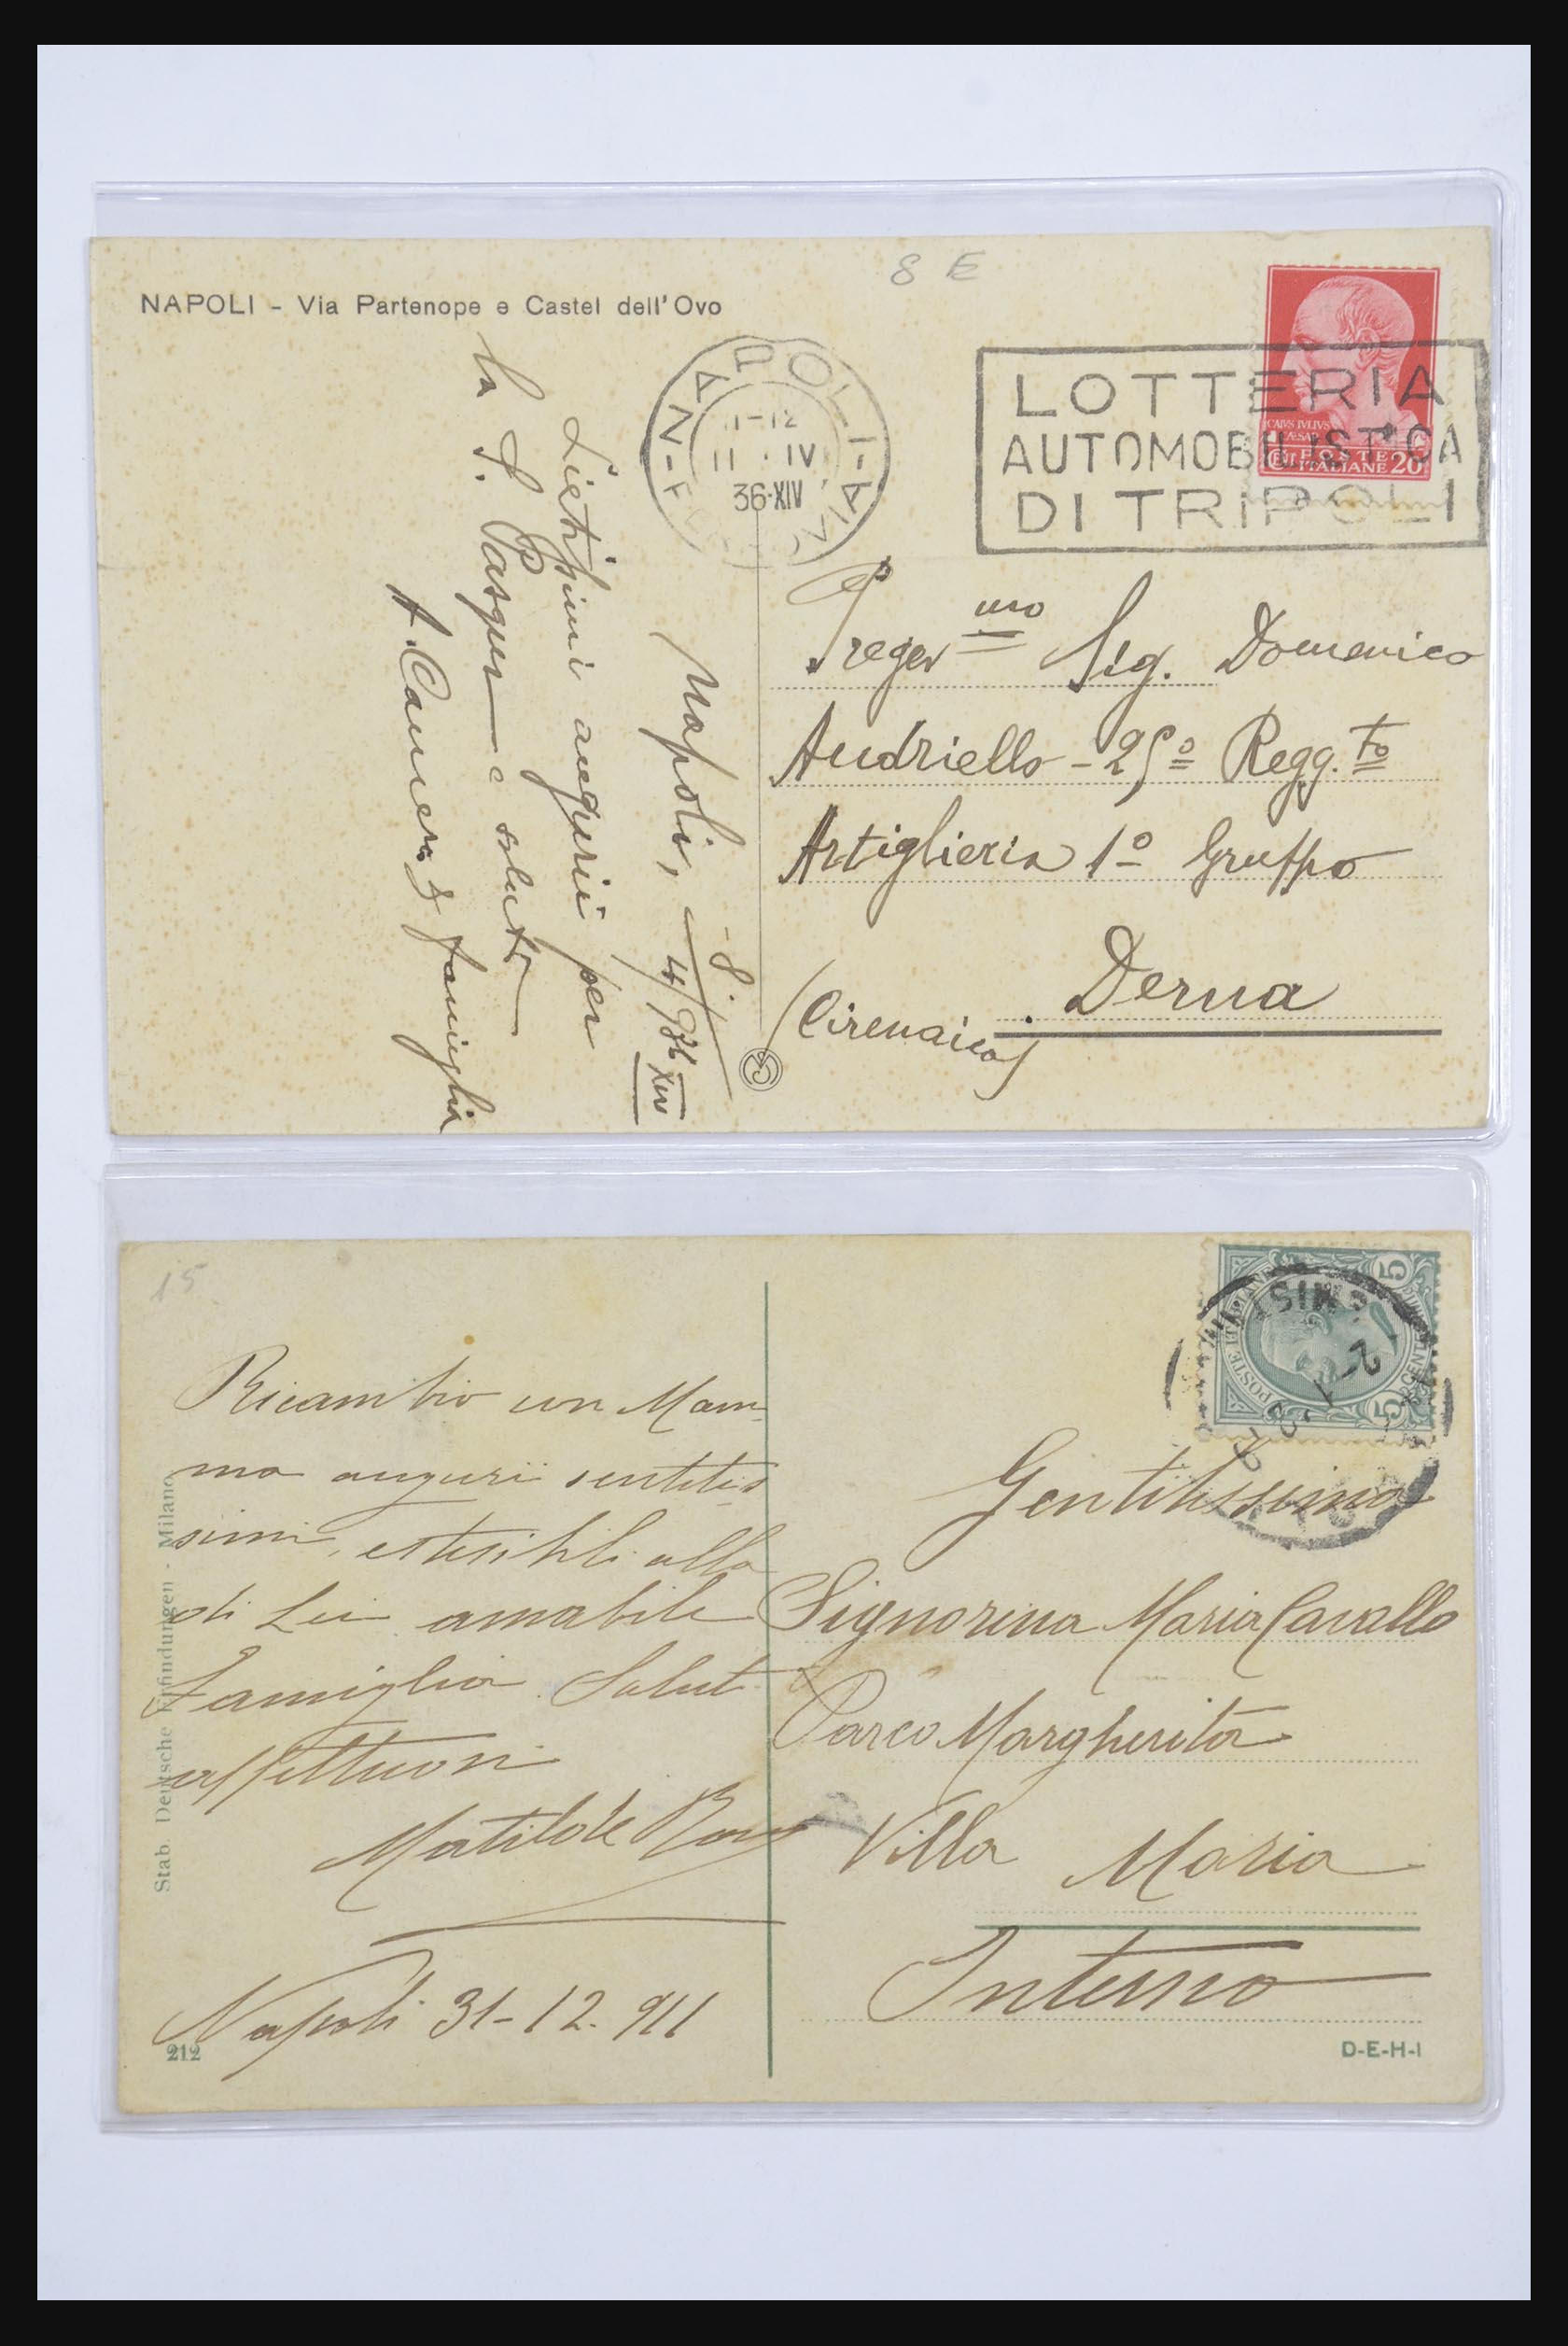 8 E
NAPOLI - Via Partenope e Castel dell'Ovo
NAPOLI
11-12
11 · IV
36·XIV
LOTTERIA
AUTOMOBILISTICA
DI TRIPOLI
CAIVS IVLIVS
CAESAR
POSTE
ITALIANE 20
Napoli, 8/4/936 XIV
Lietissimi auguri per
la S. Pasqua e saluti
famiglia
Preger mo Sig. Domenico
Andriello - 25º Regg. to
Artiglieria 1º Gruppo
Derna
(Cirenaica)
15
POSTE ITALIANE
5 CENT 5
Ricambio con Mam
ma auguri sentitis
simi, estesibili alla
di Lei amabile
Famiglia. Saluti
affettuosi
Matilde
Napoli 31-12-911
Gentilissima
Signorina Maria Cavallo
Parco Margherita
Villa Maria
Interno
Stab. Deutsche Erfindungen - Milano
212
D-E-H-I